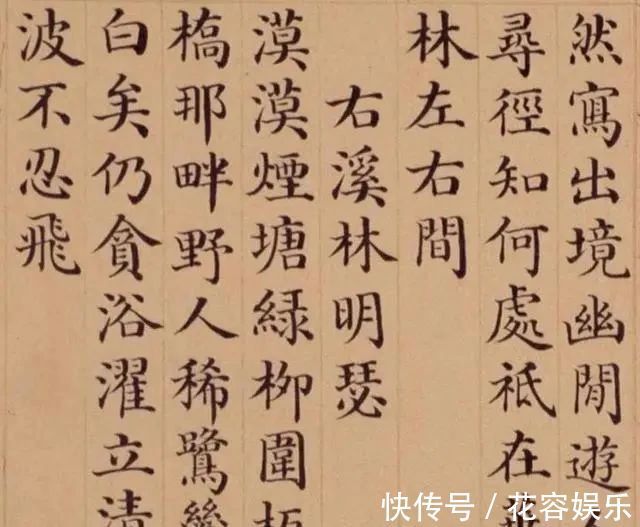 然寫出境幽閒遊
尋徑知何處祗在
林左右間
右溪林明瑟
漠漠煙塘綠柳圍
橋那畔野人稀鷺
白矣仍貪浴濯立清
波不忍飛
快传号／花容娱乐